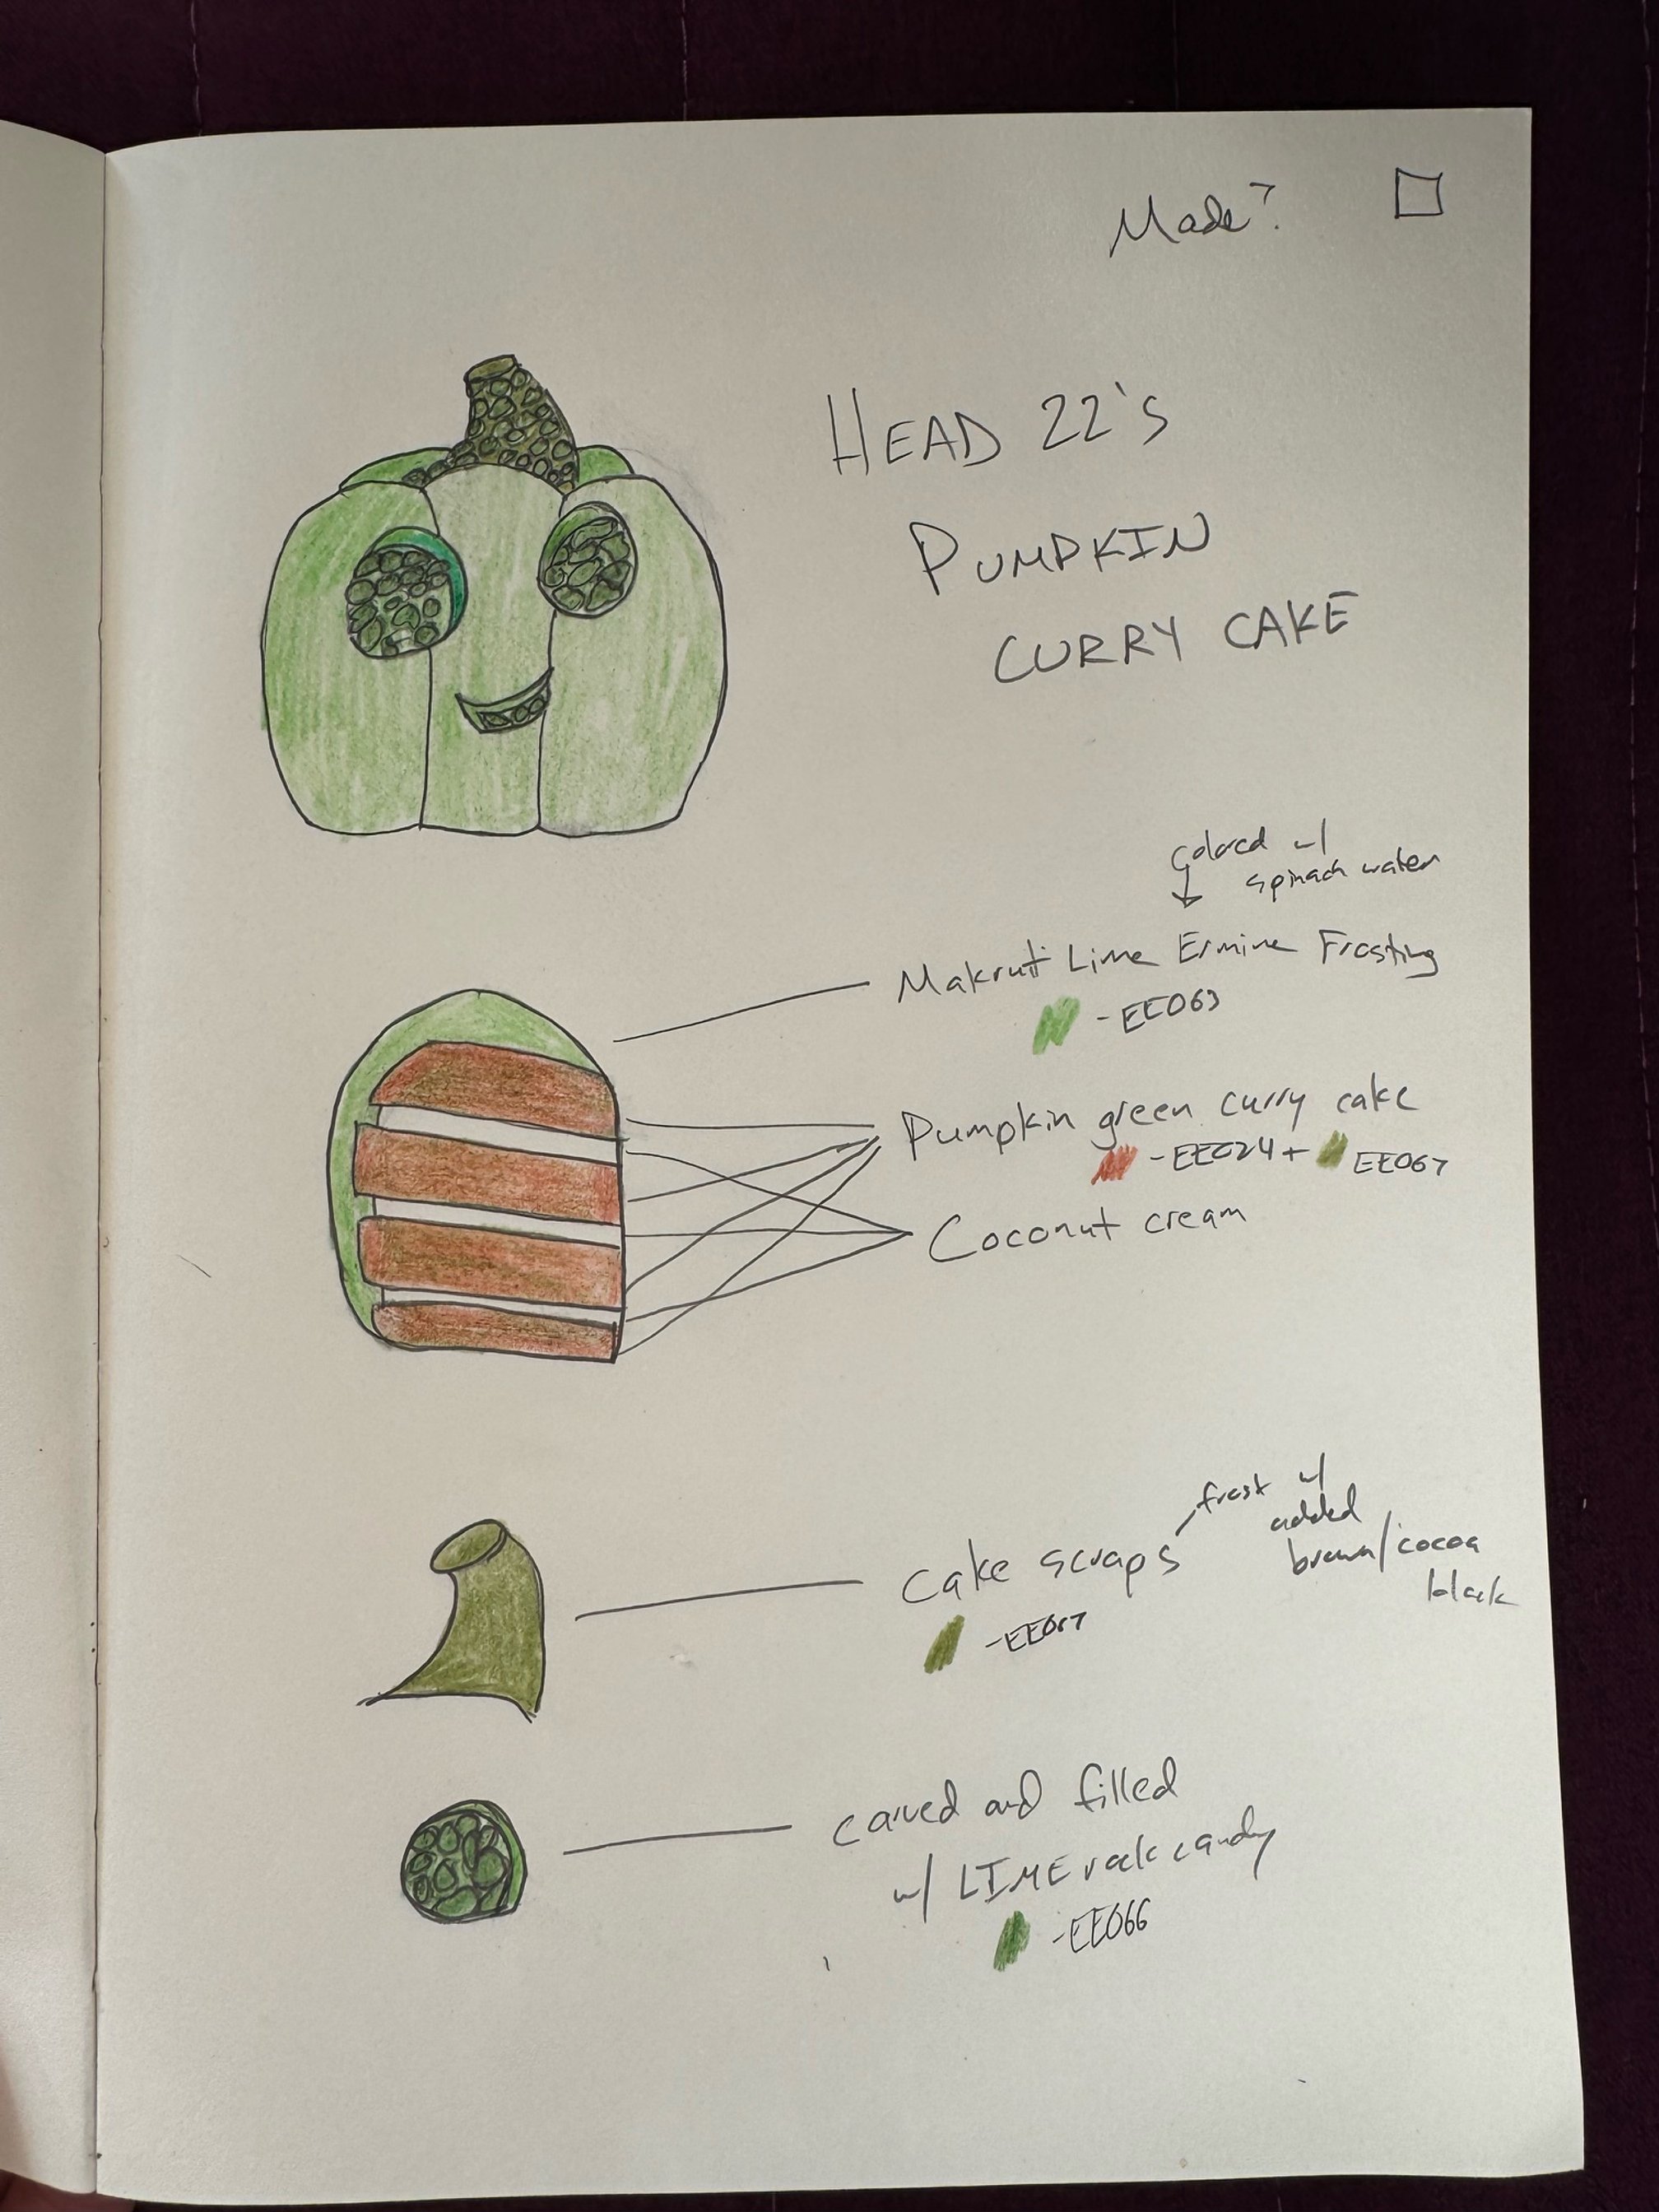 Made?
HEAD 22's
PUMPKIN
CURRY CAKE
colored w/
spinach water
Makrut Lime Ermine Frosting
-EE063
Pumpkin green curry cake
-EE024 + EE067
Coconut cream
frost w/
added
brown/cocoa
black
cake scraps
-EE067
carved and filled
w/ LIME rock candy
-EE066